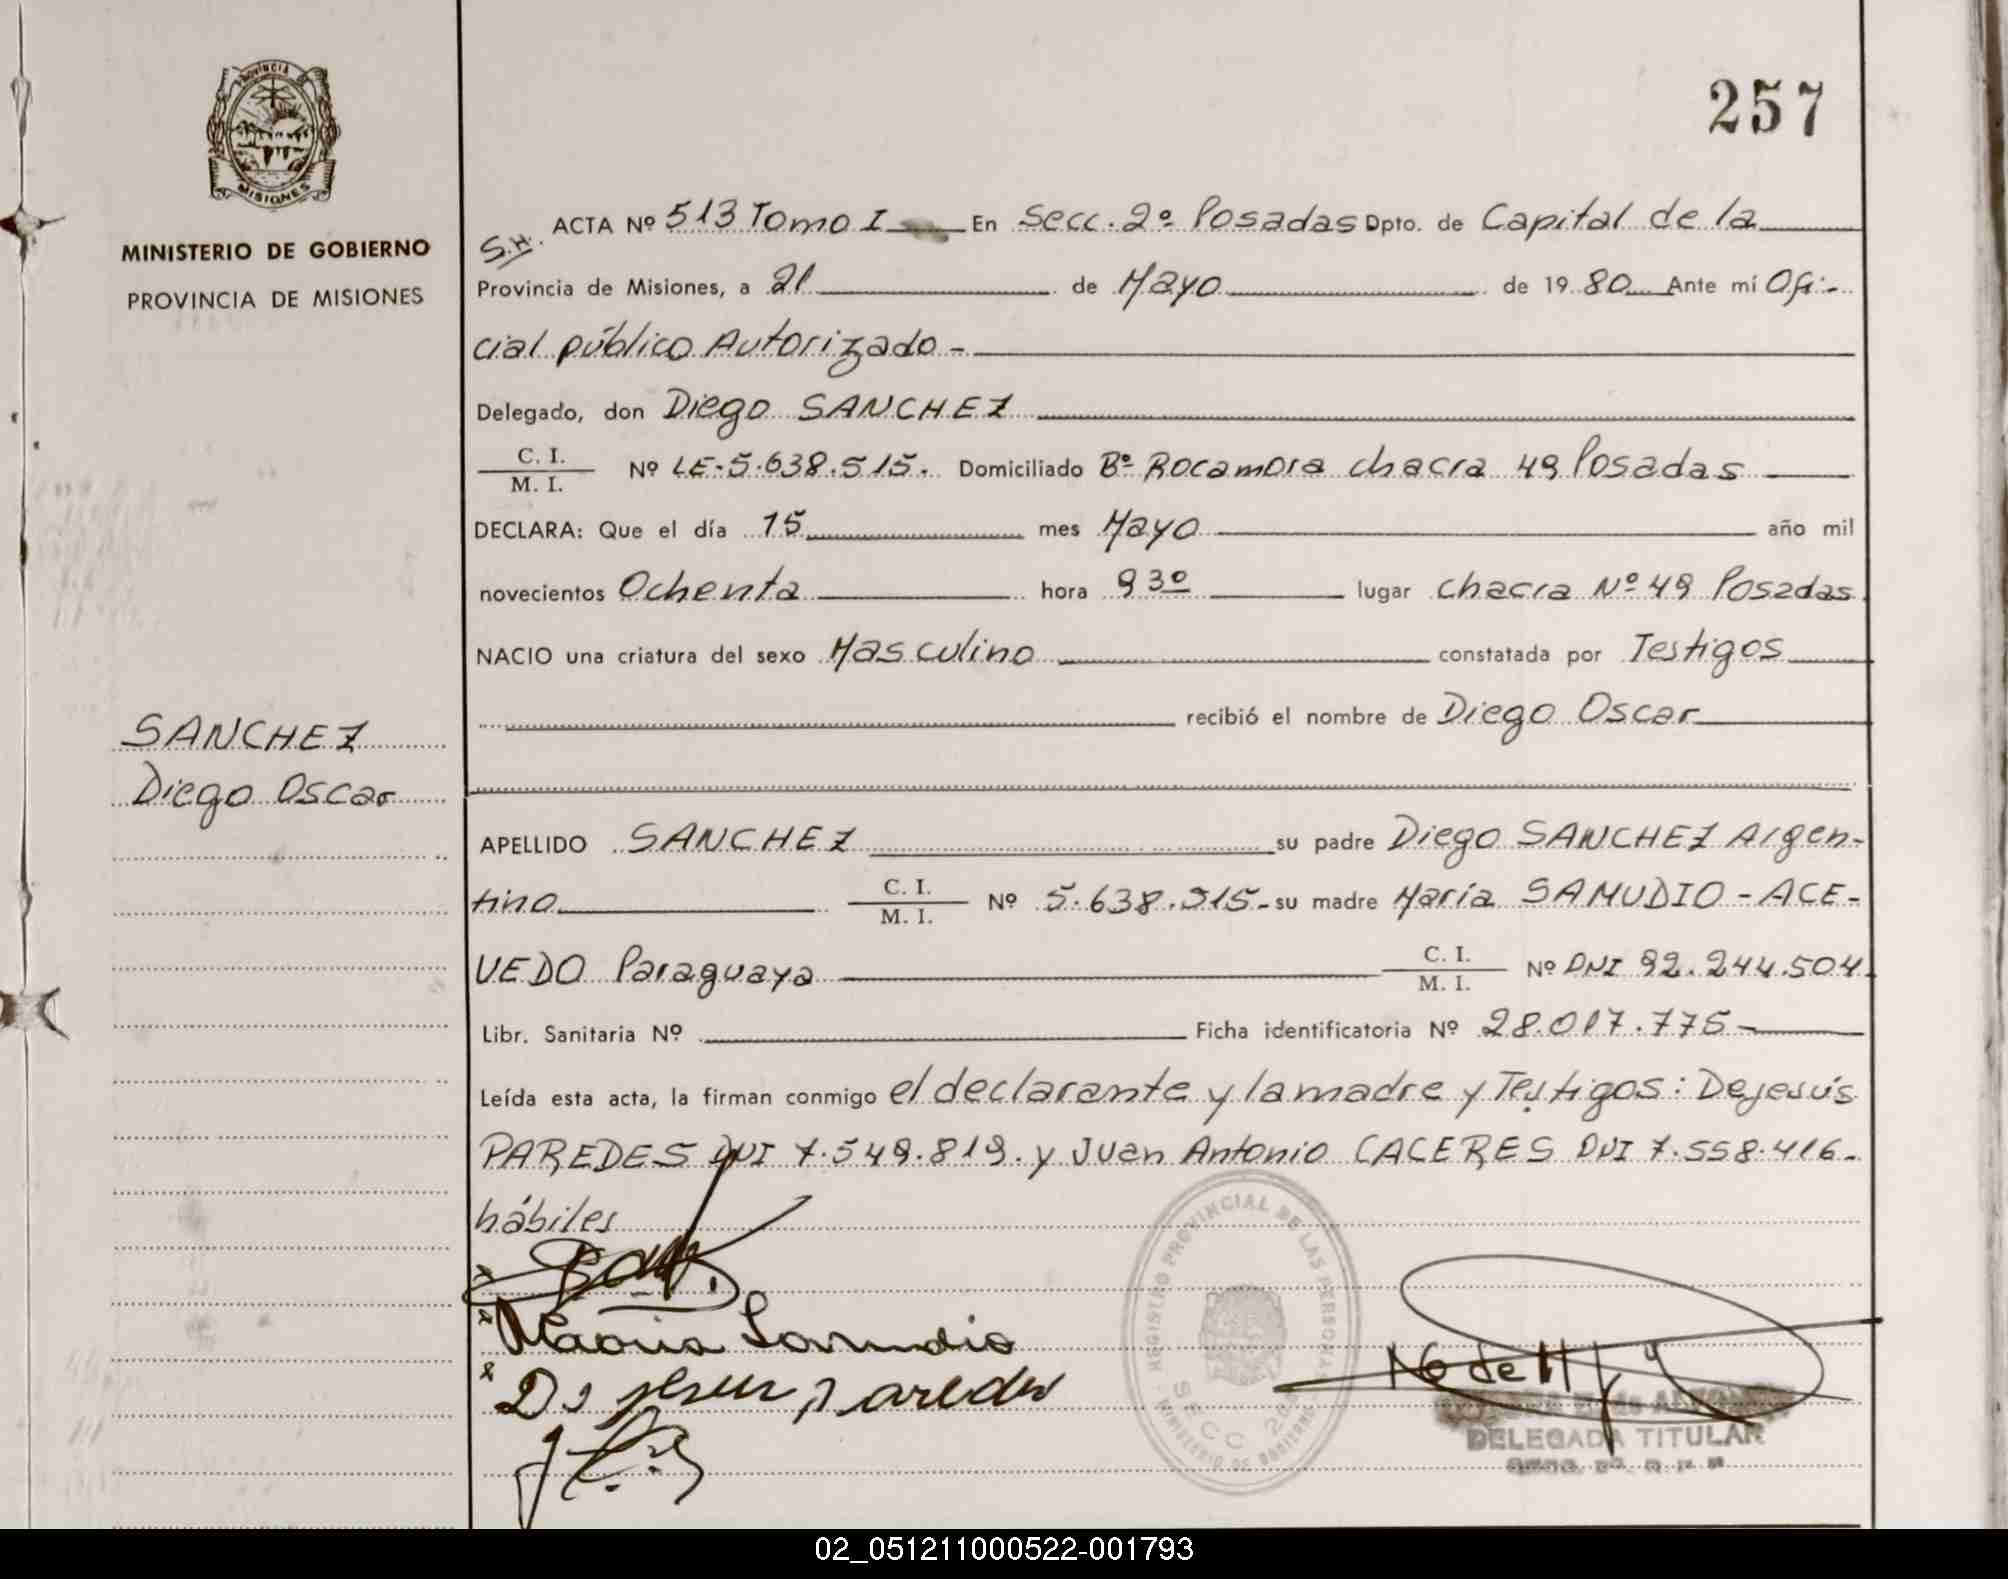 257
PROVINCIA DE
MISIONES
MINISTERIO DE GOBIERNO
PROVINCIA DE MISIONES
S.H.
ACTA Nº 513 Tomo I En Secc. 2º Posadas Dpto. de Capital de la
Provincia de Misiones, a 21 de Mayo de 19 80 Ante mí Ofi-
cial público Autorizado -
Delegado, don Diego SANCHEZ
C. I.
M. I.
Nº LE-5.638.515. Domiciliado Bº Rocamora chacra 49 Posadas
DECLARA: Que el día 15 mes Mayo año mil
novecientos Ochenta hora 9 30 lugar chacra Nº 49 Posadas
NACIO una criatura del sexo Masculino constatada por Testigos
recibió el nombre de Diego Oscar
SANCHEZ
Diego Oscar
APELLIDO SANCHEZ su padre Diego SANCHEZ Argen-
tino C. I. M. I. Nº 5.638.515- su madre María SAMUDIO - ACE-
VEDO Paraguaya C. I. M. I. Nº DNI 92.244.504
Libr. Sanitaria Nº Ficha identificatoria Nº 28.017.775-
Leída esta acta, la firman conmigo el declarante y la madre y Testigos: Dejesús
PAREDES DNI 7.549.819. y Juan Antonio CACERES DNI 7.558.416-
hábiles
María Samudio
De jesus paredes
REGISTRO PROVINCIAL DE LAS PERSONAS
SECC 2da
MINISTERIO DE GOBIERNO
DELEGADA TITULAR
02_051211000522-001793